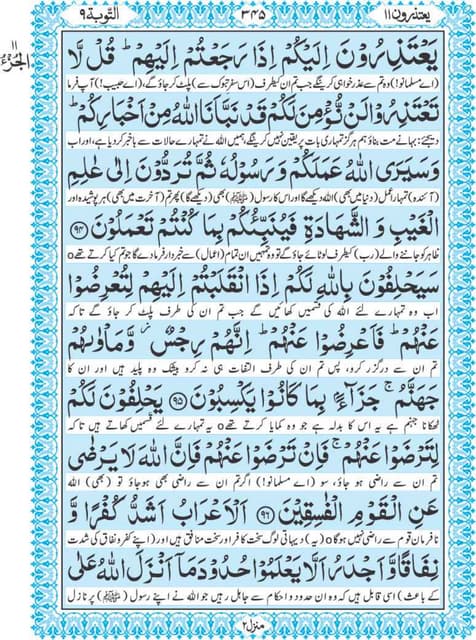 یعتذرون ۱۱
۳۴۵
التوبة ۹
۱۱
الجزء
يَعْتَذِرُوْنَ اِلَيْكُمْ اِذَا رَجَعْتُمْ اِلَيْهِمْ ؕ قُلْ لَّا
(اے مسلمانو!) وہ تم سے عذر خواہی کرینگے جب تم ان کیطرف (اس سفرِ تبوک سے) پلٹ کر جاؤ گے، (اے حبیب!) آپ فرما
تَعْتَذِرُوْا لَنْ نُّؤْمِنَ لَكُمْ قَدْ نَبَّاَنَا اللّٰهُ مِنْ اَخْبَارِكُمْ ؕ
دیجئے: بہانے مت بناؤ ہم ہرگز تمہاری بات پر یقین نہیں کرینگے، ہمیں اللہ نے تمہارے حالات سے باخبر کر دیا ہے، اور اب
وَ سَيَرَى اللّٰهُ عَمَلَكُمْ وَ رَسُوْلُهٗ ثُمَّ تُرَدُّوْنَ اِلٰى عٰلِمِ
(آئندہ) تمہارا عمل (دنیا میں بھی) اللہ دیکھے گا اور اس کا رسول (ﷺ) بھی (دیکھے گا) پھر تم (آخرت میں بھی) ہر پوشیدہ اور
الْغَيْبِ وَ الشَّهَادَةِ فَيُنَبِّئُكُمْ بِمَا كُنْتُمْ تَعْمَلُوْنَ ﴿۹۴﴾
ظاہر کو جاننے والے (رب) کیطرف لوٹائے جاؤ گے تو وہ تمہیں ان تمام (اعمال) سے خبردار فرما دے گا جو تم کیا کرتے تھے o
سَيَحْلِفُوْنَ بِاللّٰهِ لَكُمْ اِذَا انْقَلَبْتُمْ اِلَيْهِمْ لِتُعْرِضُوْا
اب وہ تمہارے لئے اللہ کی قسمیں کھائیں گے جب تم ان کی طرف پلٹ کر جاؤ گے تاکہ
عَنْهُمْ ؕ فَاَعْرِضُوْا عَنْهُمْ ؕ اِنَّهُمْ رِجْسٌ ۫ وَّ مَاْوٰىهُمْ
تم ان سے درگزر کرو، پس تم ان کی طرف التفات ہی نہ کرو بیشک وہ پلید ہیں اور ان کا
جَهَنَّمُ ۚ جَزَآءًۢ بِمَا كَانُوْا يَكْسِبُوْنَ ﴿۹۵﴾ يَحْلِفُوْنَ لَكُمْ
ٹھکانا جہنم ہے یہ اس کا بدلہ ہے جو وہ کمایا کرتے تھے o یہ تمہارے لئے قسمیں کھاتے ہیں تاکہ
لِتَرْضَوْا عَنْهُمْ ۚ فَاِنْ تَرْضَوْا عَنْهُمْ فَاِنَّ اللّٰهَ لَا يَرْضٰى
تم ان سے راضی ہو جاؤ، سو (اے مسلمانو!) اگر تم ان سے راضی بھی ہو جاؤ تو (بھی) اللہ
عَنِ الْقَوْمِ الْفٰسِقِيْنَ ﴿۹۶﴾ اَلْاَعْرَابُ اَشَدُّ كُفْرًا وَّ
نافرمان قوم سے راضی نہیں ہوگا o (یہ) دیہاتی لوگ سخت کافر اور سخت منافق ہیں اور (اپنے کفر و نفاق کی شدت
نِفَاقًا وَّ اَجْدَرُ اَلَّا يَعْلَمُوْا حُدُوْدَ مَاۤ اَنْزَلَ اللّٰهُ عَلٰى
کے باعث) اسی قابل ہیں کہ وہ ان حدود و احکام سے جاہل رہیں جو اللہ نے اپنے رسول (ﷺ) پر نازل
منزل ۲